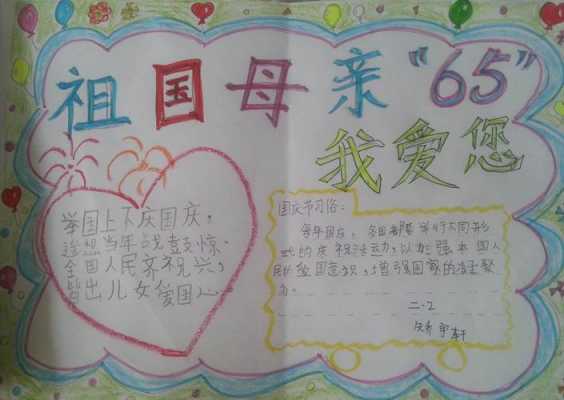 祖国母亲"65"
我爱您
举国上下庆国庆,
追想当年战鼓惊.
全国人民齐祝兴,
皆出儿女爱国心
国庆节习俗:
每年国庆,各国都要举行不同形
式的庆祝活动,以加强本国人
民的爱国意识,增强国家的凝聚
力。
二.2